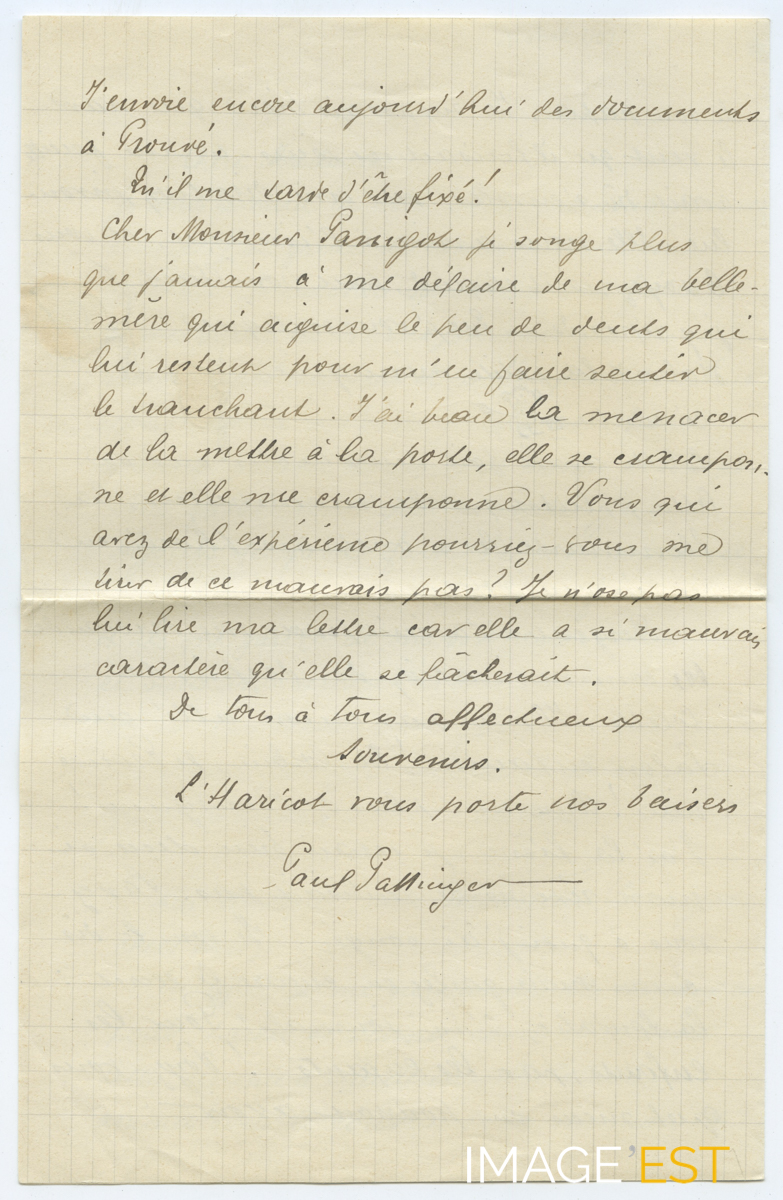 J'envoie encore aujourd'hui des documents
à Prouvé.
Qu'il me tarde d'être fixé!
Cher Monsieur Parrigot je songe plus
que jamais à me défaire de ma belle-
mère qui aiguise le peu de dents qui
lui restent pour m'en faire sentir
le tranchant. J'ai beau la menacer
de la mettre à la porte, elle se crampon-
ne et elle me cramponne. Vous qui
avez de l'expérience pourriez-vous me
tirer de ce mauvais pas? Je n'ose pas
lui lire ma lettre car elle a si mauvais
caractère qu'elle se fâcherait.
De tous à tous affectueux
souvenirs.
L'Haricot vous porte nos baisers
Paul
IMAGE'EST